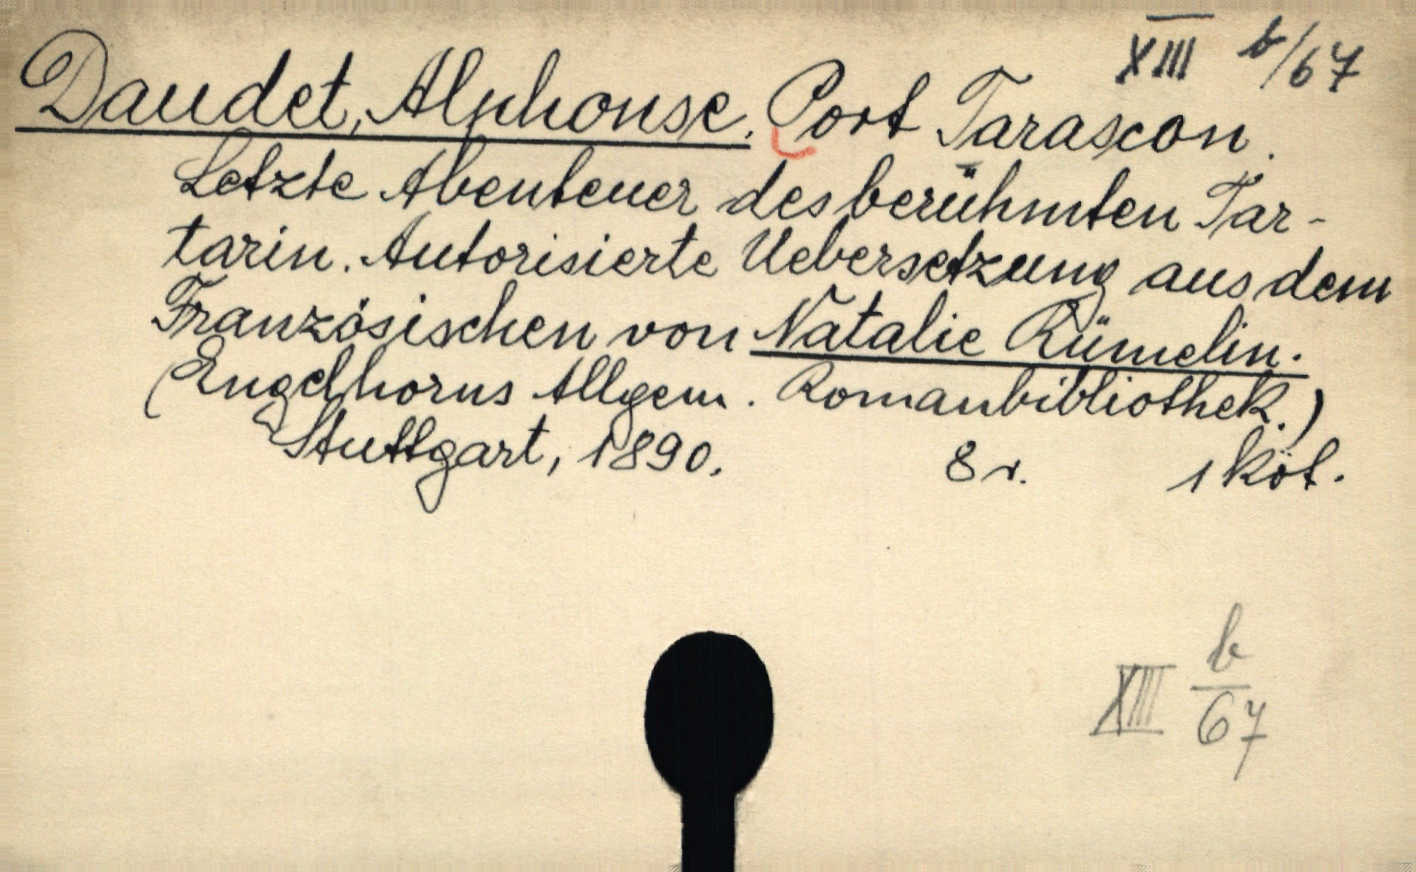 XIII b/67
Daudet, Alphonse. Port Tarascon.
Letzte Abenteuer des berühmten Tar-
tarin. Autorisierte Uebersetzung aus dem
Französischen von Natalie Rümelin.
(Engelhorns Allgem. Romanbibliothek.)
Stuttgart, 1890. 8 r. 1 köt.
XIII b/67